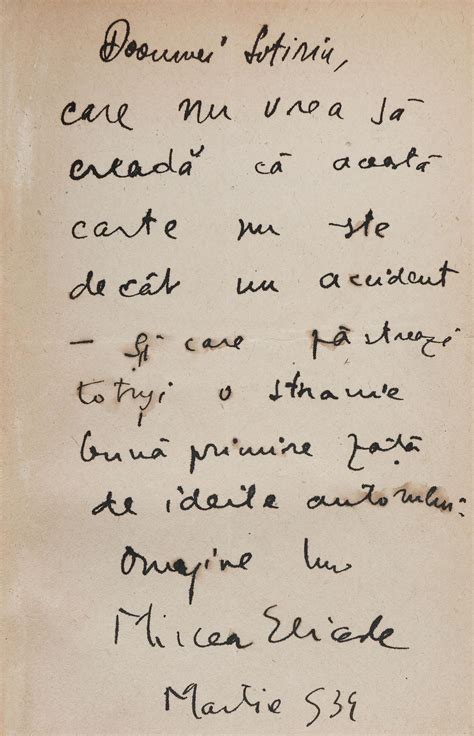 Doamnei Sotiriu,
care nu vrea să
creadă că această
carte nu este
decât un accident
– și care păstrează
totuși o stranie
bună primire față
de ideile autorului:
Omagiile lui
Mircea Eliade
Martie 939